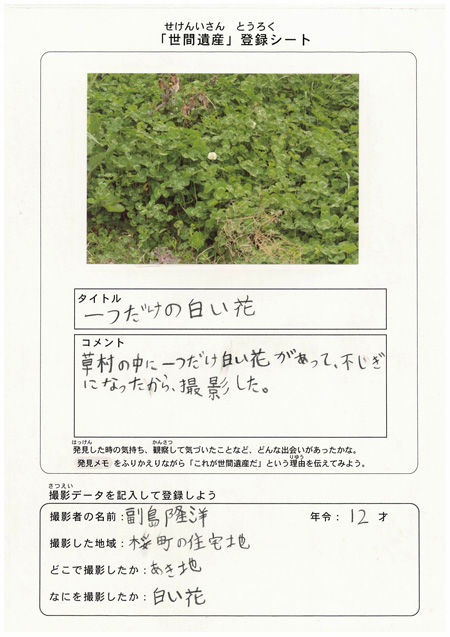 せけんいさん とうろく
「世間遺産」登録シート
タイトル
一つだけの白い花
コメント
草村の中に一つだけ白い花があって、不しぎ
になったから、撮影した。
はっけん かんさつ
発見した時の気持ち、観察して気づいたことなど、どんな出会いがあったかな。
りゆう
発見メモ をふりかえりながら「これが世間遺産だ」という理由を伝えてみよう。
さつえい
撮影データを記入して登録しよう
撮影者の名前:副島隆洋 年令:12才
撮影した地域:桜町の住宅地
どこで撮影したか:あき地
なにを撮影したか:白い花